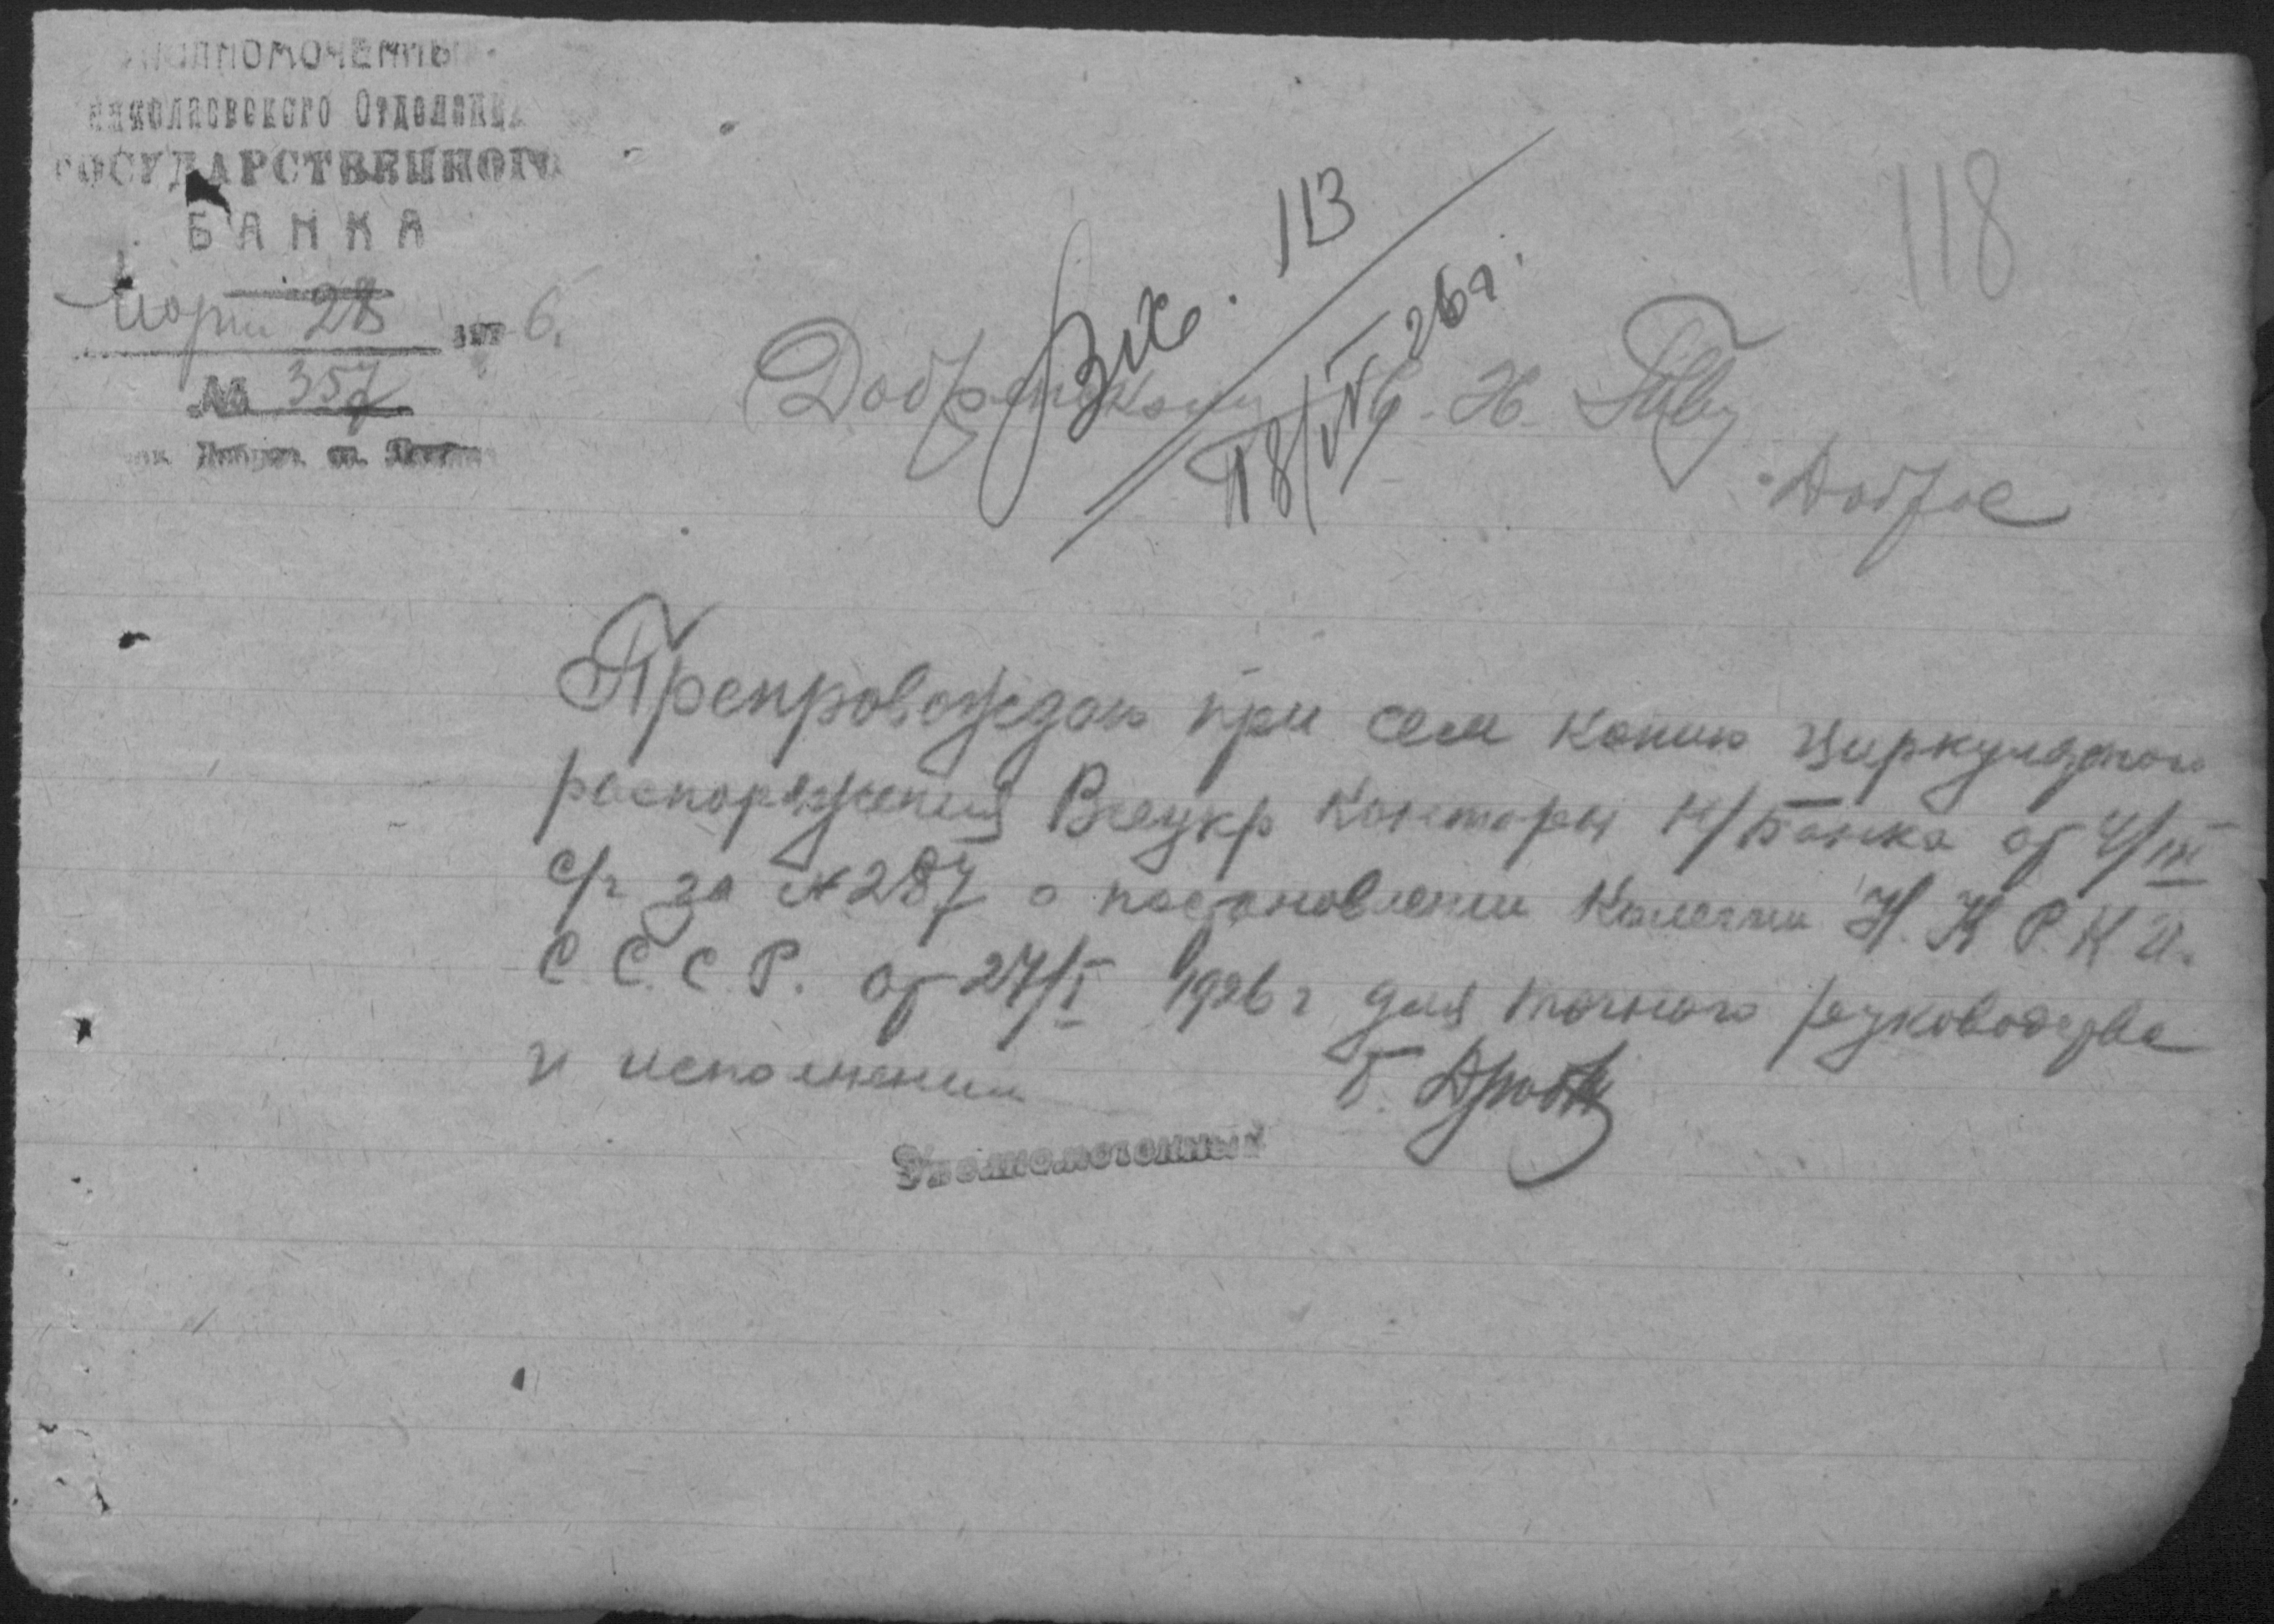 УПОЛНОМОЧЕННЫЙ
Николаевского Отделения
ГОСУДАРСТВЕННОГО
БАНКА
Марта 28 192 6.
№ 357
118
Вх. 113
18/IV 26 г.
Добренскому С. Х. Т-ву
Доброе
Препровождаю при сем копию циркулярного
распоряжения Всеукр Конторы Н/Банка от 4/III
с/г за № 287 о постановлении Колегии Н. К Р. К И.
С. С. С. Р. от 27/I 1926 г для точного руководства
и исполнении
Уполномоченный